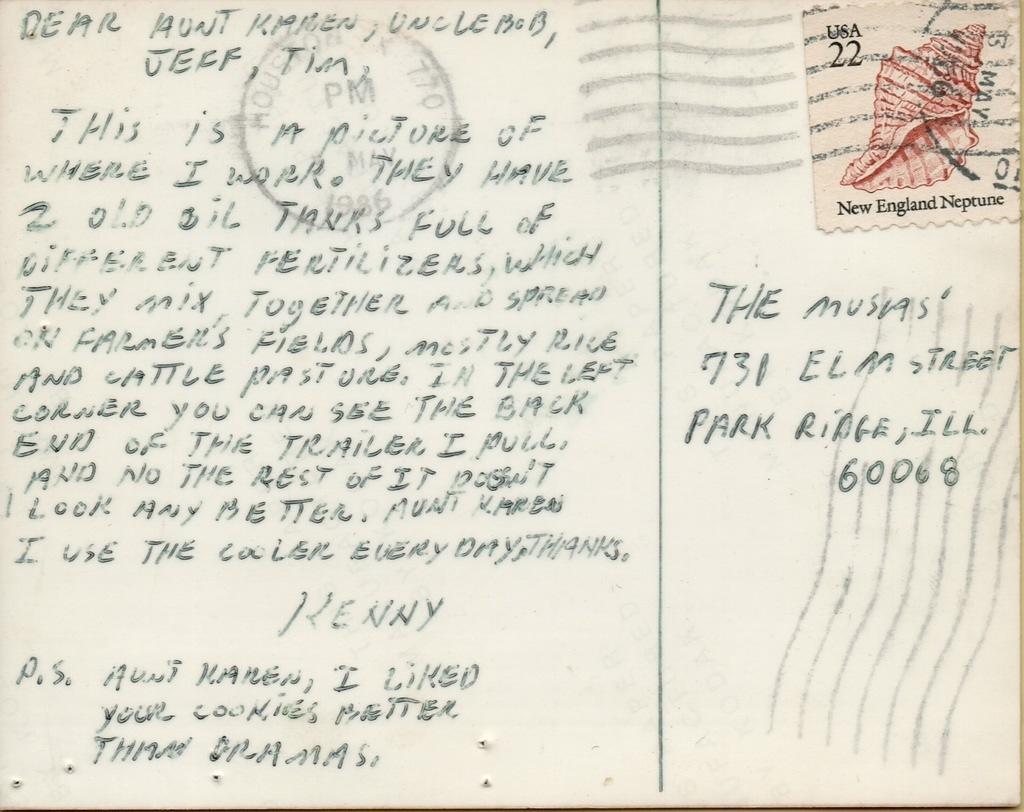 DEAR AUNT KAREN, UNCLE BOB,
JEFF, TIM,
THIS IS A PICTURE OF
WHERE I WORK. THEY HAVE
2 OLD OIL TANKS FULL OF
DIFFERENT FERTILIZERS, WHICH
THEY MIX TOGETHER AND SPREAD
ON FARMER'S FIELDS, MOSTLY RICE
AND CATTLE PASTURE. IN THE LEFT
CORNER YOU CAN SEE THE BACK
END OF THE TRAILER I PULL.
AND NO THE REST OF IT DOESN'T
LOOK ANY BETTER. AUNT KAREN
I USE THE COOLER EVERY DAY. THANKS.
KENNY
P.S. AUNT KAREN, I LIKED
YOUR COOKIES BETTER
THAN GRAMAS.
PM
MAY
1986
USA
22
New England Neptune
MAY
THE MUSIAS'
731 ELM STREET
PARK RIDGE, ILL.
60068